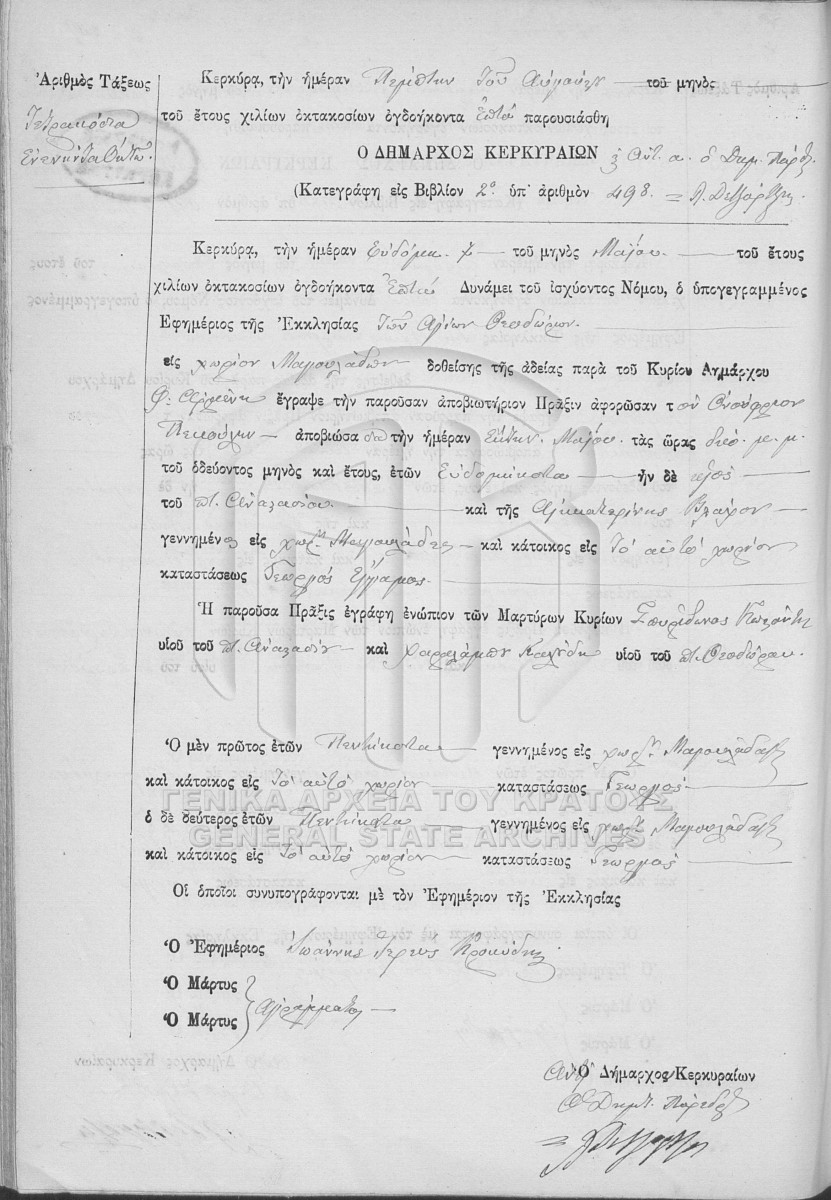 Ἀριθμὸς Τάξεως
Τετρακόσια
Ἐνενῆντα Ὀκτώ.
Κερκύρᾳ, τὴν ἡμέραν Πέμπτην τοῦ Αὐγούστου τοῦ μηνὸς
τοῦ ἔτους χιλίων ὀκτακοσίων ὀγδοήκοντα Ἑπτά παρουσιάσθη
Ὁ ΔΗΜΑΡΧΟΣ ΚΕΡΚΥΡΑΙΩΝ ὁ Δημ. Πάρεδ.
(Κατεγράφη εἰς Βιβλίον 2ο ὑπ' ἀριθμὸν 498
Κερκύρᾳ, τὴν ἡμέραν Εὐδόμη 7 τοῦ μηνὸς Μαΐου τοῦ ἔτους
χιλίων ὀκτακοσίων ὀγδοήκοντα Ἑπτά Δυνάμει τοῦ ἰσχύοντος Νόμου, ὁ ὑπογεγραμμένος
Ἐφημέριος τῆς Ἐκκλησίας τῶν Ἁγίων Θεοδώρων
εἰς χωρίον Μαγουλάδων δοθείσης τῆς ἀδείας παρὰ τοῦ Κυρίου Δημάρχου
ἔγραψε τὴν παροῦσαν ἀποβιωτήριον Πρᾶξιν ἀφορῶσαν τὸν Ὀνούφριον
ἀποβιώσα τὴν ἡμέραν Ἕκτην Μαΐου τὰς ὥρας δύο μ.μ.
τοῦ ὁδεύοντος μηνὸς καὶ ἔτους, ἐτῶν Εὐδομήκοντα ἦν δὲ υἱὸς
τοῦ π. Ἀναστασίου καὶ τῆς Αἰκατερίνης
γεννημένος εἰς χωρ. Μαγουλάδες καὶ κάτοικος εἰς τὸ αὐτὸ χωρίον
καταστάσεως Γεωργὸς Ἔγγαμος
Ἡ παροῦσα Πρᾶξις ἐγράφη ἐνώπιον τῶν Μαρτύρων Κυρίων Σπυρίδωνος
υἱοῦ τοῦ π. Ἀναστασίου καὶ Χαραλάμπου Καλούδη υἱοῦ τοῦ π. Θεοδώρου
Ὁ μὲν πρῶτος ἐτῶν Πεντήκοντα γεννημένος εἰς χωρ. Μαγουλάδες
καὶ κάτοικος εἰς τὸ αὐτὸ χωρίον καταστάσεως Γεωργὸς
ΓΕΝΙΚΑ ΑΡΧΕΙΑ ΤΟΥ ΚΡΑΤΟΥΣ
ὁ δὲ δεύτερος ἐτῶν Πεντήκοντα γεννημένος εἰς χωρ. Μαγουλάδες
GENERAL STATE ARCHIVES
καὶ κάτοικος εἰς τὸ αὐτὸ χωρίον καταστάσεως Γεωργὸς
Οἱ ὁποῖοι συνυπογράφονται μὲ τὸν Ἐφημέριον τῆς Ἐκκλησίας
Ὁ Ἐφημέριος Ἰωάννης Ἱερεὺς
Ὁ Μάρτυς
Ἀγράμματοι
Ὁ Μάρτυς
Ὁ Δήμαρχος Κερκυραίων
Ὁ Δημτ. Πάρεδρος